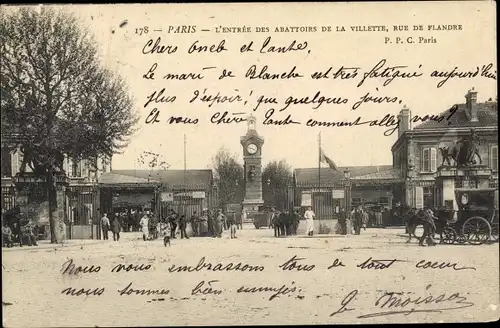 178 - PARIS - L'ENTRÉE DES ABATTOIRS DE LA VILLETTE, RUE DE FLANDRE
P. P. C. Paris
Chers Oncb et tante,
Le mari de Blanche est très fatigué aujourd'hui
plus d'espoir, que quelques jours.
Et vous chère tante comment allez vous?
Nous vous embrassons tous de tout coeur
nous sommes bien ennuyés.
Moisson